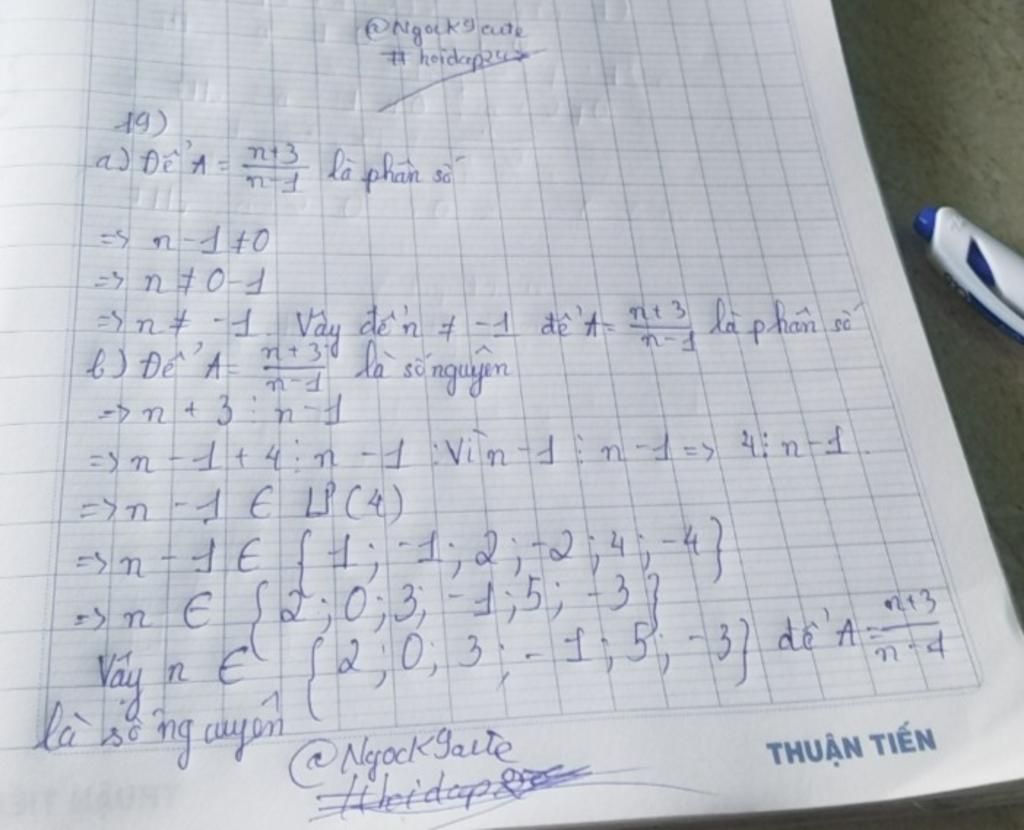 @Ngock9aute
# hoidap247
19)
a) Để A = n+3/n-1 là phân số
=> n - 1 ≠ 0
=> n ≠ 0 - 1
=> n ≠ -1. Vậy để n ≠ -1 để A = n+3/n-1 là phân số
b) Để A = n+3/n-1 là số nguyên
=> n + 3 ⋮ n - 1
=> n - 1 + 4 ⋮ n - 1 : Vì n - 1 ⋮ n - 1 => 4 ⋮ n - 1.
=> n - 1 ∈ Ư(4)
=> n - 1 ∈ {1; -1; 2; -2; 4; -4}
=> n ∈ {2; 0; 3; -1; 5; -3}
Vậy n ∈ {2; 0; 3; -1; 5; -3} để A = n+3/n-1
là số nguyên
@Ngock9aute
#hoidap
THUẬN TIẾN